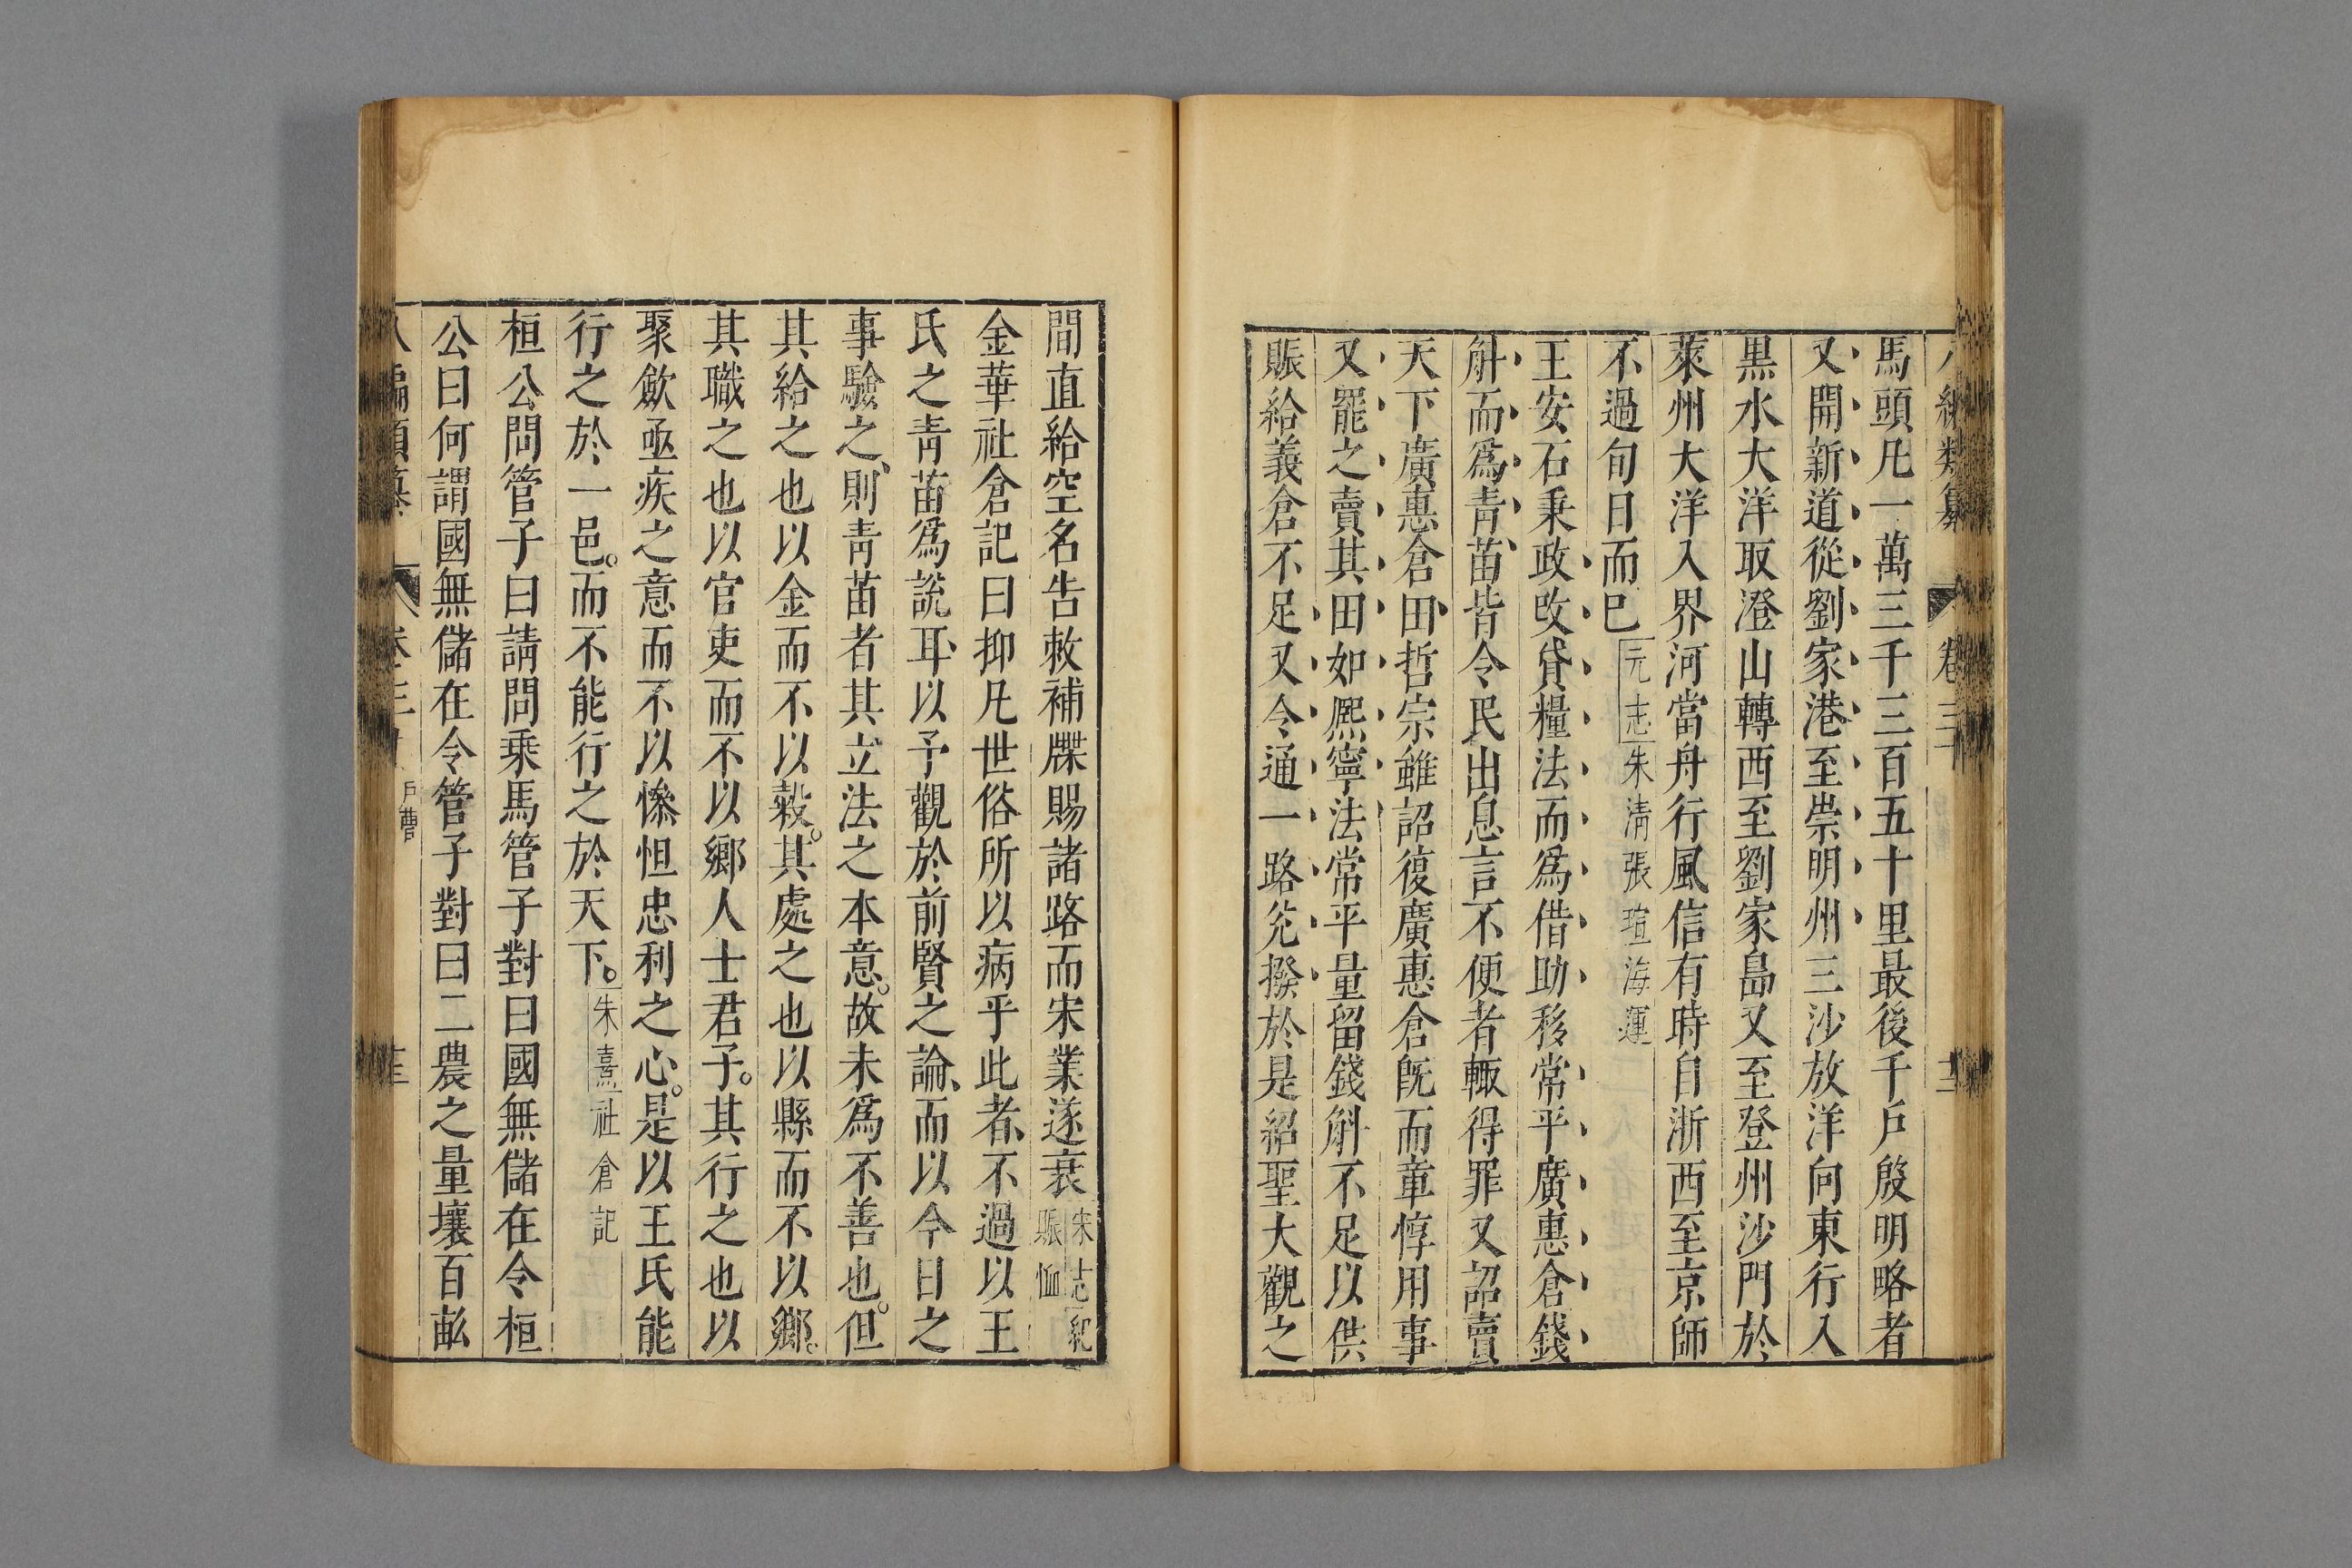 馬頭凡一萬三千三百五十里最後千戶殷明略者
又開新道從劉家港至崇明州三沙放洋向東行入
黑水大洋取澄山轉西至劉家島又至登州沙門於
萊州大洋入界河當舟行風信有時自浙西至京師
不過旬日而已元志朱清張瑄海運
王安石秉政改貸糧法而爲借助移常平廣惠倉錢
斛而爲青苗皆令民出息言不便者輙得罪又詔賣
天下廣惠倉田哲宗雖詔復廣惠倉旣而章惇用事
又罷之賣其田如熈寧法常平量留錢斛不足以供
賑給義倉不足又令通一路兊撥於是紹聖大觀之
間直給空名告敕補牒賜諸路而宋業遂衰宋志紀賑恤
金華社倉記曰抑凡世俗所以病乎此者不過以王
氏之靑苗爲說耳以予觀於前賢之論而以今日之
事驗之則靑苗者其立法之本意故未爲不善也但
其給之也以金而不以穀其處之也以縣而不以鄉
其職之也以官吏而不以鄉人士君子其行之也以
聚歛亟疾之意而不以慘怛忠利之心是以王氏能
行之於一邑而不能行之於天下朱熹社倉記
桓公問管子曰請問乘馬管子對曰國無儲在令桓
公曰何謂國無儲在令管子對曰二農之量壤百畝
戶曹